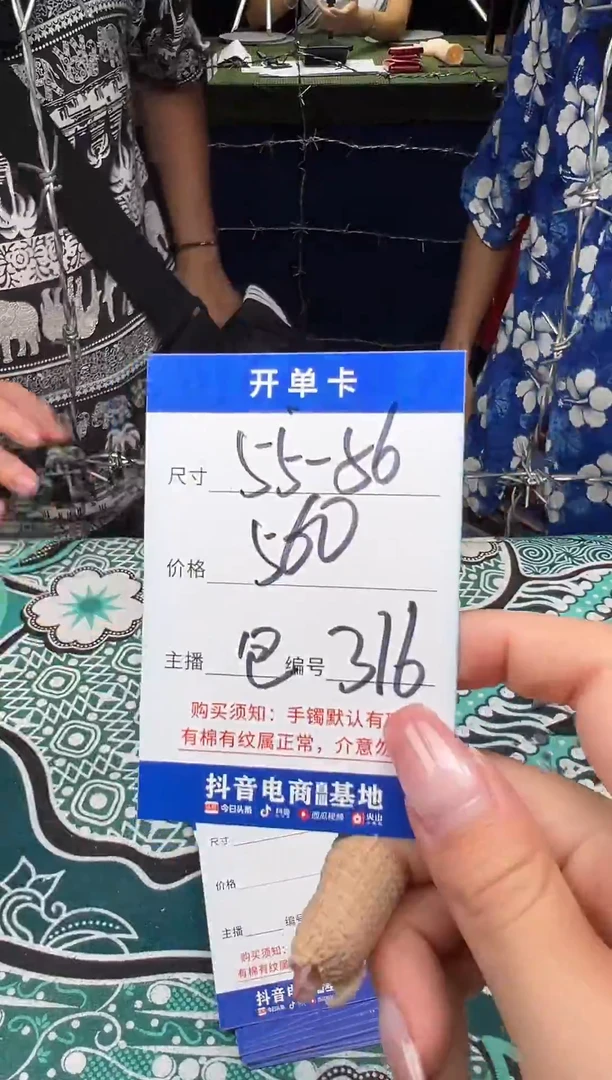 开单卡
尺寸 55-86
价格 560
主播 包 编号 316
购买须知：手镯默认有
有棉有纹属正常，介意勿
抖音电商直播基地
今日头条 抖音 西瓜视频 火山
尺寸
价格
主播 编号
购买须知：
有棉有纹属
抖音
今日头条